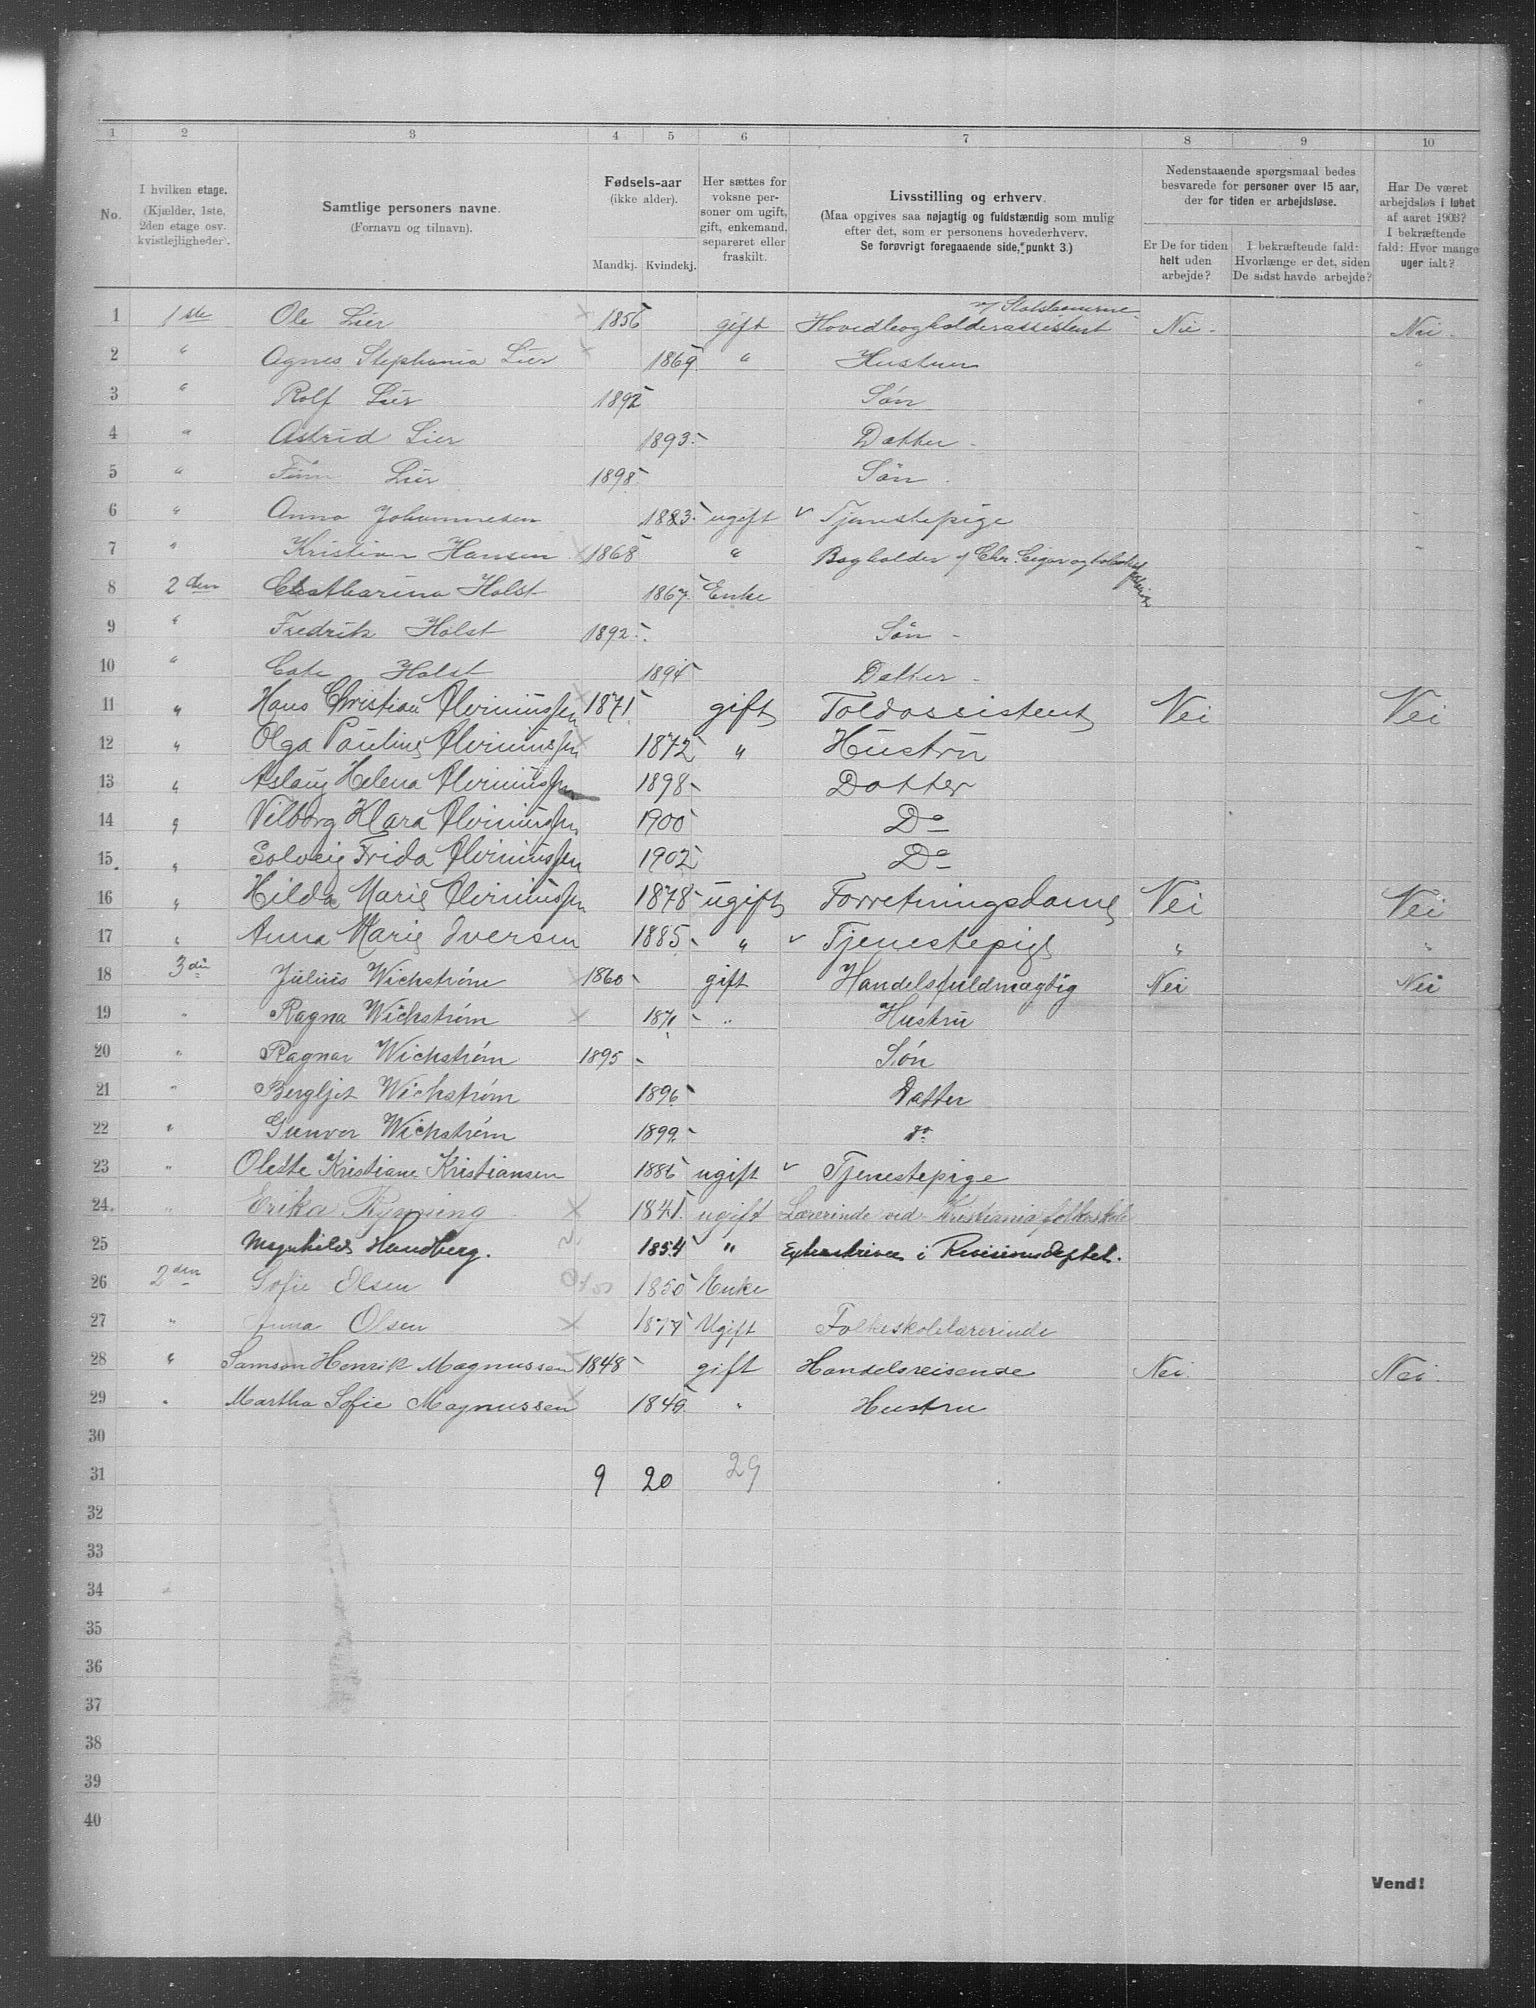 1 2 3 4 5 6 7 8 9 10
No.
I hvilken etage.
(Kjælder, 1ste,
2den etage osv.
kvistlejligheder).
Samtlige personers navne.
(Fornavn og tilnavn).
Fødsels-aar
(ikke alder).
Mandkj. Kvindekj.
Her sættes for
voksne per-
soner om ugift,
gift, enkemand,
separeret eller
fraskilt.
Livsstilling og erhverv.
(Maa opgives saa nøjagtig og fuldstændig som mulig
efter det, som er personens hovederhverv.
Se forøvrigt foregaaende side, punkt 3.)
Nedenstaaende spørgsmaal bedes
besvarede for personer over 15 aar,
der for tiden er arbejdsløse.
Er De for tiden
helt uden
arbejde?
I bekræftende fald:
Hvorlænge er det, siden
De sidst havde arbejde?
Har De været
arbejdsløs i løbet
af aaret 1903?
I bekræftende
fald: Hvor mange
uger ialt?
1 1ste Ole Lier 1856 gift Hovedbogholderassistent v/ Statsbanerne Nei Nei
2 " Agnes Stephania Lier 1869 " Hustru "
3 " Rolf Lier 1892 Søn "
4 " Astrid Lier 1893 Datter
5 " Finn Lier 1898 Søn
6 " Anna Johannesen 1883 ugift Tjenestepige "
7 " Kristian Hansen 1868 " Bogholder "
8 2den Catharina Holst 1867 Enke
9 " Fredrik Holst 1892 Søn
10 " Cate Holst 1894 Datter
11 " Hans Christian 1871 gift Toldassistent Nei Nei
12 " Olga Pauline 1872 " Hustru
13 " Aslaug Helena 1898 Datter
14 " Vilborg Klara 1900 Do
15 " Solveig Frida 1902 Do
16 " Hilda Marie 1878 ugift Forretningsdame Nei Nei
17 " Anna Marie Iversen 1885 " Tjenestepige " "
18 3die Julius Wichstrøm 1860 gift Handelsfuldmægtig Nei Nei
19 " Ragna Wichstrøm 1871 " Hustru
20 " Ragnar Wichstrøm 1895 Søn
21 " Bergljot Wichstrøm 1896 Datter
22 " Gunvor Wichstrøm 1899 do
23 " Olette Kristiane Kristiansen 1886 ugift Tjenestepige
24 " Erika 1841 ugift Lærerinde ved Kristiania folkeskole
25 Magnhild Handberg. 1854 " Extraskriver i Revisionsdeptet.
26 2den Sofie Olsen 1850 Enke
27 " Anna Olsen 1877 Ugift Folkeskolelærerinde
28 " Samson Henrik Magnussen 1848 gift Handelsreisende Nei Nei
29 " Martha Sofie Magnussen 1846 " Hustru
30
31 9 20 29
32
33
34
35
36
37
38
39
40
Vend!